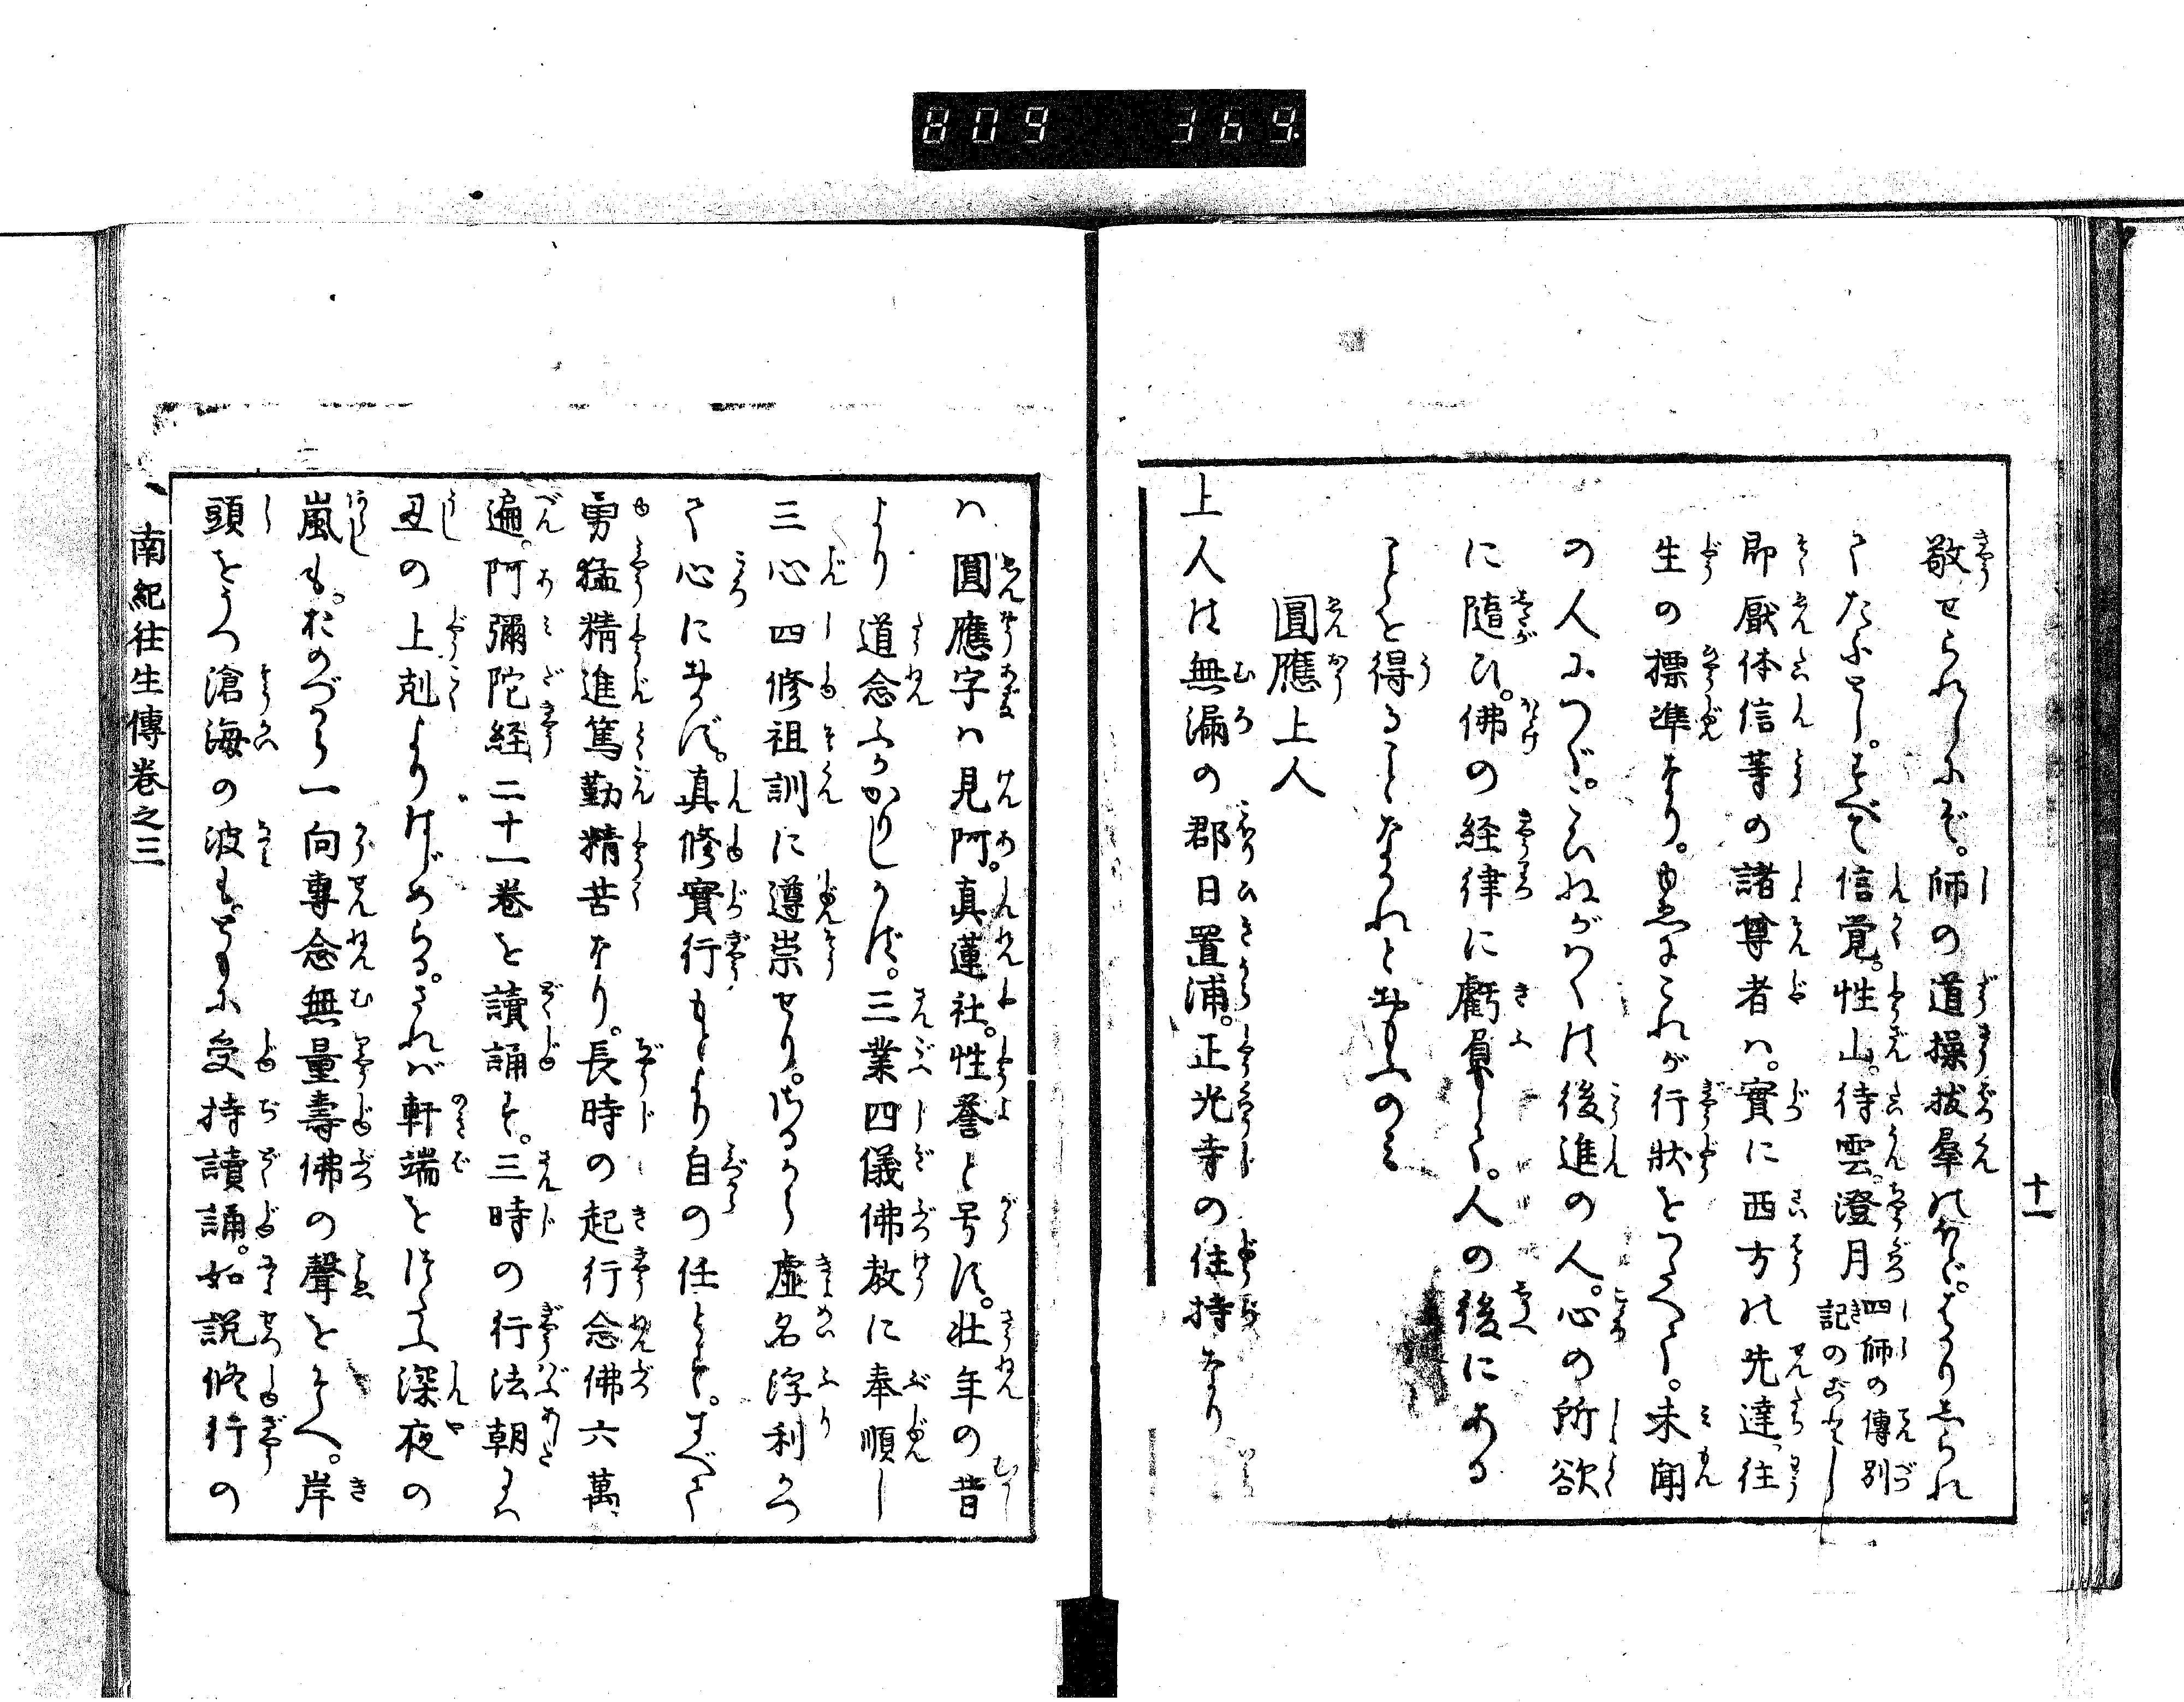 809 369.
十一
敬せられしにぞ。師の道操抜羣のほど。はかりしられ
てたふとし。すべて信覚。性山。待雲。澄月四師の傳別記のごとし
即厭休信等の諸尊者ハ。實に西方の先達。往
生の標準なり。ゆゑにこれが行状をつたへて。未聞
の人につぐ。こひねがハくは後進の人。心の所欲
に随ひ。佛の経律に虧負して。人の後にある
ことを得ることなかれとおもふのミ
圓應上人
上人は無漏の郡日置浦。正光寺の住持なり
ハ圓應字ハ見阿。真蓮社。性誉と号す。壮年の昔
より道念ふかかりしかば。三業四儀佛教に奉順し
三心四修祖訓に遵崇せり。さるから虚名浮利かつ
て心におかず。真修實行もとより自の任とす。すべて
勇猛精進篤勤精苦なり。長時の起行念佛六萬
遍。阿彌陀経二十一巻を讀誦す。三時の行法朝にハ
丑の上剋よりはじめらる。されば軒端をつたふ深夜の
嵐も。おのづから一向専念無量壽佛の聲をそへ。岸
頭をうつ滄海の波も。ともに受持讀誦。如説修行の
南紀往生傳巻之三